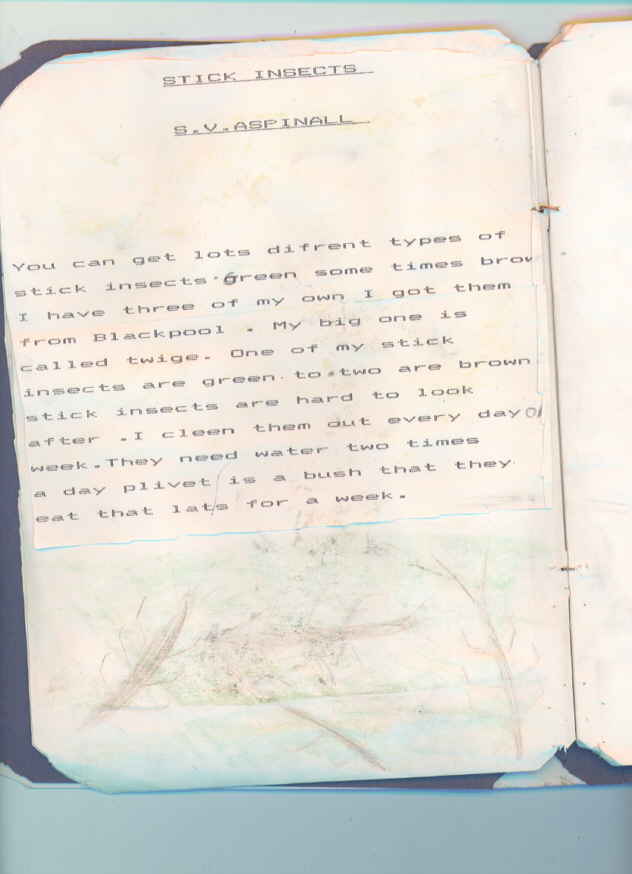 STICK INSECTS
S.V.ASPINALL
You can get lots difrent types of
stick insects.green some times brow
I have three of my own I got them
from Blackpool . My big one is
called twige. One of my stick
insects are green.to.two are brown
stick insects are hard to look
after .I cleen them out every day
week.They need water two times
a day plivet is a bush that they
eat that lats for a week.